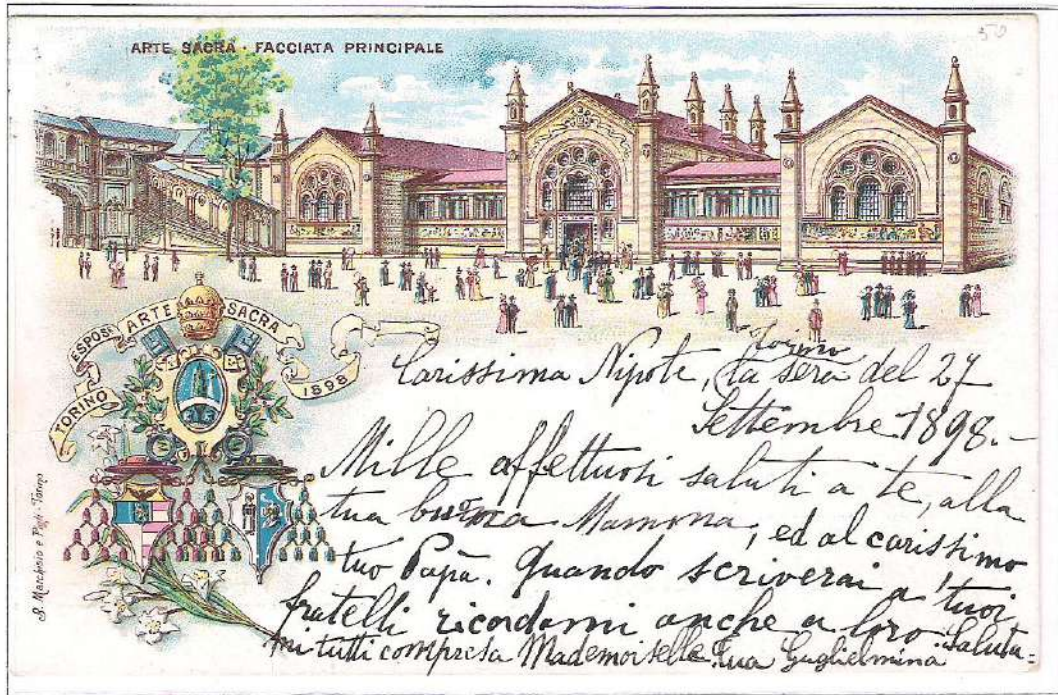 50
ARTE SACRA - FACCIATA PRINCIPALE
TORINO ESPOS: ARTE SACRA 1898
B. Marchisio e Figli - Torino
Torino
Carissima Nipote, la sera del 27
Settembre 1898.-
Mille affettuosi saluti a te, alla
tua buona Mamma, ed al carissimo
tuo Papà. Quando scriverai a' tuoi
fratelli ricordami anche a loro. Saluta-
mi tutti compresa Mademoiselle. Tua Guglielmina